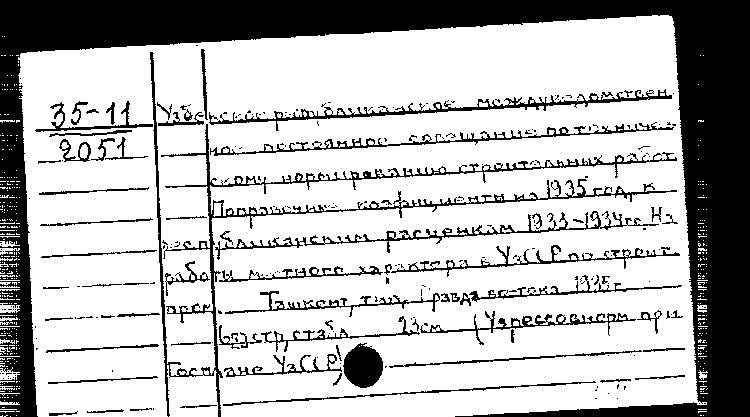 35-11
2051
Узбекское республиканское междуведомствен
ное постоянное совещание по техничес
скому нормированию строительных работ
Поправочные коэфициенты на 1935 год, к
республиканским расценкам 1933-1934гг. На
работы местного характера в УзССР по строит.
пром. Ташкент, тип. Правда востока 1935г.
стр, с табл 23см (Узрессовнорм при
Госплане УзССР)